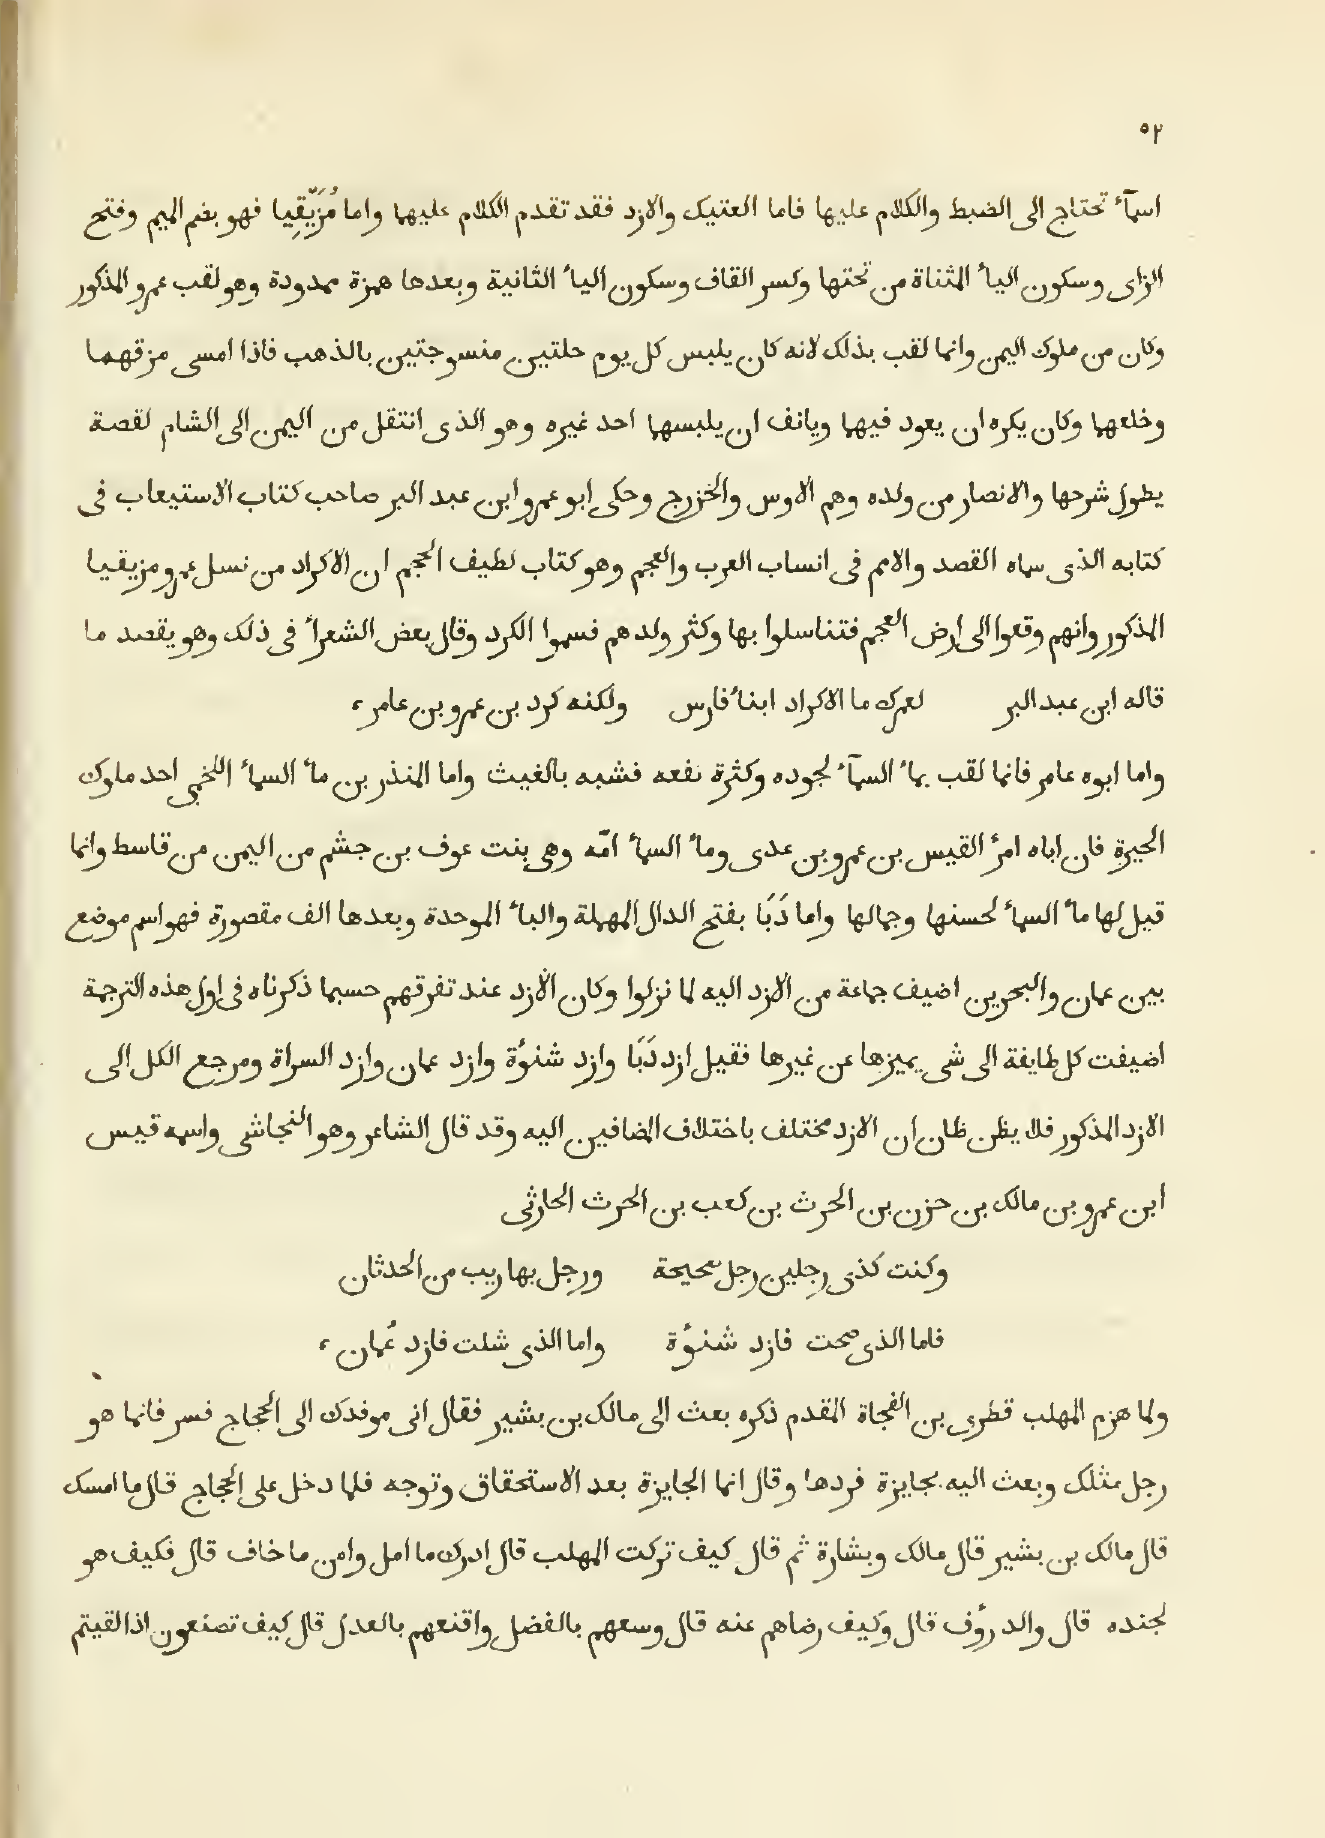 ٥٢
اسمآء تحتاج الى الضبط والكلام عليها فاما العتيك والازد فقد تقدم الكلام عليهما واما مُزَيْقِيا فهو بضم الميم وفتح
الزاى وسكون الياء المثناة من تحتها وكسر القاف وسكون الياء الثانية وبعدها همزة ممدودة وهو لقب عمرو المذكور
وكان من ملوك اليمن وانما لقب بذلك لانه كان يلبس كل يوم حلتين منسوجتين بالذهب فاذا امسى مزقهما
وخلعهما وكان يكره ان يعود فيهما ويانف ان يلبسهما احد غيره وهو الذى انتقل من اليمن الى الشام لقصة
يطول شرحها والانصار من ولده وهم الاوس والخزرج وحكى ابو عمرو ابن عبد البر صاحب كتاب الاستيعاب فى
كتابه الذى سماه القصد والامم فى انساب العرب والعجم وهو كتاب لطيف الحجم ان الاكراد من نسل عمرو مزيقيا
المذكور وانهم وقعوا الى ارض العجم فتناسلوا بها وكثر ولدهم فسموا الكرد وقال بعض الشعراء فى ذلك وهو يقصد ما
قاله ابن عبد البر لعمرك ما الاكراد ابناء فارس ولكنه كرد بن عمرو بن عامر،
واما ابوه عامر فانما لقب بماء السمآء لجوده وكثرة نفعه فشبه بالغيث واما المنذر بن ماء السماء اللخمى احد ملوك
الحيرة فان اباه امرء القيس بن عمرو بن عدى وماء السماء امّه وهى بنت عوف بن جشم من اليمن من قاسط وانما
قيل لها ماء السماء لحسنها وجمالها واما دَبَا بفتح الدال المهملة والباء الموحدة وبعدها الف مقصورة فهو اسم موضع
بين عمان والبحرين اضيف جماعة من الازد اليه لما نزلوا وكان الازد عند تفرقهم حسبما ذكرناه فى اول هذه الترجمة
اضيفت كل طايفة الى شى يميزها عن غيرها فقيل ازد دَبَا وازد شنوُة وازد عمان وازد السراة ومرجع الكل الى
الازد المذكور فلا يظن ظان ان الازد مختلف باختلاف المضافين اليه وقد قال الشاعر وهو النجاشى واسمه قيس
ابن عمرو بن مالك بن حزن بن الحرث بن كعب بن الحرث الحارثى
وكنت كذى رجلين رجل صحيحة ورجل بها ريب من الحدثان
فاما الذى صحت فازد شنوُة واما الذى شلت فازد عُمان،
ولما هزم المهلب قطرى بن الفجاة المقدم ذكره بعث الى مالك بن بشير فقال انى موفدك الى الحجاج فسر فانما هو
رجل مثلك وبعث اليه بجايزة فردها وقال انما الجايزة بعد الاستحقاق وتوجه فلما دخل على الحجاج قال ما امسك
قال مالك بن بشير قال مالك وبشارة ثم قال كيف تركت المهلب قال ادرك ما امل وامن ما خاف قال فكيف هو
لجنده قال والد روُف قال وكيف رضاهم عنه قال وسعهم بالفضل واقنعهم بالعدل قال كيف تصنعون اذا لقيتم